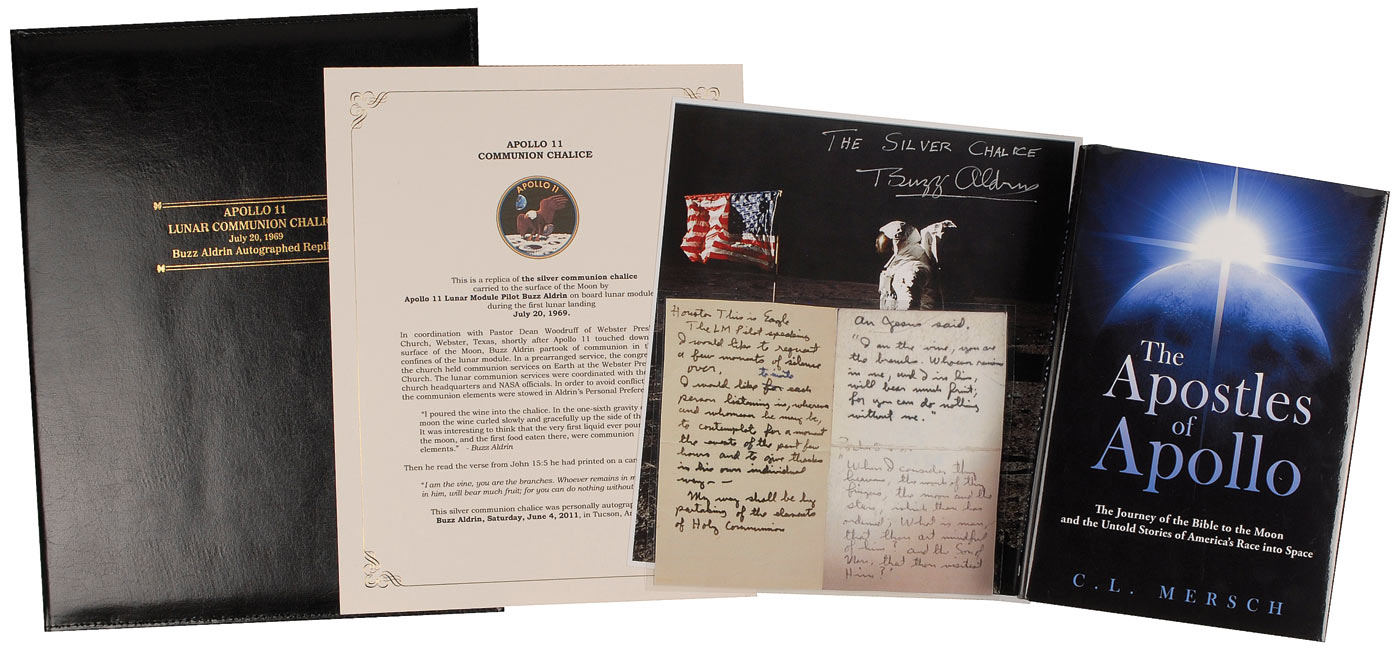 APOLLO 11
LUNAR COMMUNION CHALIC
July 20, 1969
Buzz Aldrin Autographed Repli
APOLLO 11
COMMUNION CHALICE
APOLLO 11
This is a replica of the silver communion chalice
carried to the surface of the Moon by
Apollo 11 Lunar Module Pilot Buzz Aldrin on board lunar module
during the first lunar landing
July 20, 1969.
In coordination with Pastor Dean Woodruff of Webster Pres
Church, Webster, Texas, shortly after Apollo 11 touched down
surface of the Moon, Buzz Aldrin partook of communion in t
confines of the lunar module. In a prearranged service, the congre
the church held communion services on Earth at the Webster Pre
Church. The lunar communion services were coordinated with the
church headquarters and NASA officials. In order to avoid conflict
the communion elements were stowed in Aldrin's Personal Prefere
"I poured the wine into the chalice. In the one-sixth gravity
moon the wine curled slowly and gracefully up the side of th
It was interesting to think that the very first liquid ever pour
the moon, and the first food eaten there, were communion
elements." - Buzz Aldrin
Then he read the verse from John 15:5 he had printed on a car
"I am the vine, you are the branches. Whoever remains in m
in him, will bear much fruit; for you can do nothing without
This silver communion chalice was personally autograp
Buzz Aldrin, Saturday, June 4, 2011, in Tucson, Ar
THE SILVER CHALICE
Buzz Aldrin
Houston This is Eagle
The LM Pilot speaking
I would like to request
a few moments of silence
over.
to invite
I would like for each
person listening in, wherever
and whomever he may be,
to contemplate for a moment
the events of the past few
hours and to give thanks
in his own individual
way - -
My way shall be by
partaking of the elements
of Holy Communion
As Jesus said,
"I am the vine, you are
the branches. Whoever remains
in me, and I in him,
will bear much fruit;
for you can do nothing
without me."
"When I consider thy
heavens, the work of thy
fingers, the moon and the
stars, which thou hast
ordained; What is man,
that thou art mindful
of him? and the Son of
Man, that thou visitest
Him?"
The
Apostles
of
Apollo
The Journey of the Bible to the Moon
and the Untold Stories of America's Race into Space
C. L. MERSCH